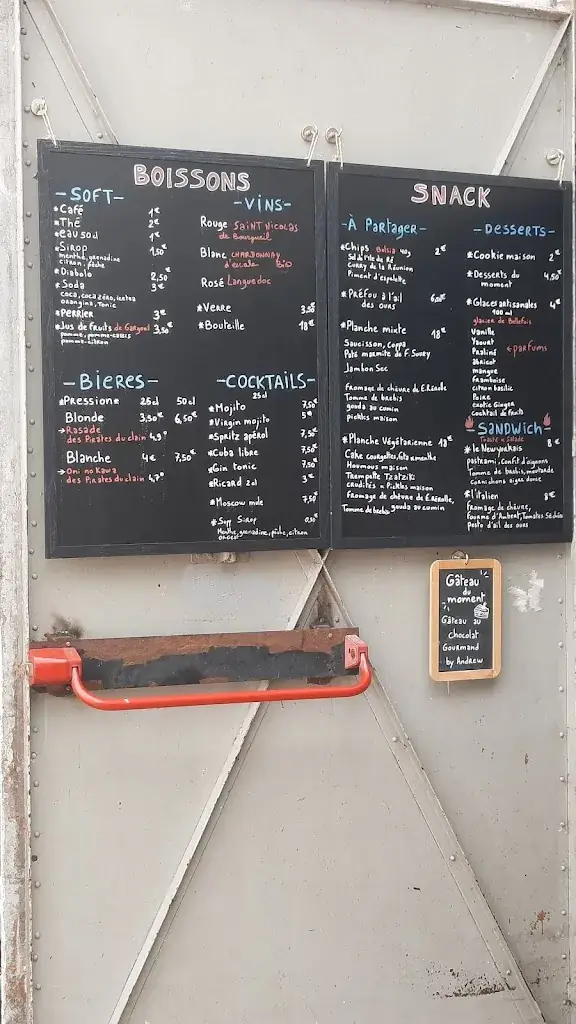 BOISSONS
-SOFT-
*Café 1€
*Thé 2€
*eau 50cl 1€
*Sirop 1,50€
menthe, grenadine
citron, pêche
*Diabolo 2,50€
*Soda 3€
coca, coca zéro, icetea
orangina, Tonic
*PERRIER 3€
*Jus de fruits de Gargoul 3,50€
pomme, pomme-cassis
pomme-citron
-VINS-
Rouge SAINT NICOLAS
de Bourgueil
Blanc CHARDONNAY
d'escale Bio
Rosé Languedoc
*Verre 3,50€
*Bouteille 18€
-BIERES-
*Pression 25cl 50cl
Blonde 3,50€ 6,50€
→Rasade
des Pirates du clain 4,9°
Blanche 4€ 7,50€
→Oni no Kawa
des Pirates du clain 4,7°
-COCKTAILS-
25cl
*Mojito 7,50€
*Virgin mojito 5€
*Spritz apérol 7,50€
*Cuba libre 7,50€
*Gin tonic 7,50€
*Ricard 2cl 3€
*Moscow mule 7,50€
*Supp Sirop 0,50€
Menthe, grenadine, pêche, citron
SNACK
-À Partager-
*Chips Bolsia 2€
Sel de l'île de Ré
Curry de la Réunion
Piment d'espelette
*PRÉFOU à l'ail 6,00€
des ours
*Planche mixte 18€
Saucisson, Coppa
Paté marmite de F. Soury
Jambon Sec
fromage de chèvre de E.Rérolle
Tomme de brebis
gouda au cumin
pickles maison
*Planche Végétarienne 18€
Cake courgettes, feta menthe
Houmous maison
Trempette Tzatziki
crudités n Pickles maison
Fromage de chèvre de E.Rérolle,
Tomme de brebis, gouda au cumin
-DESSERTS-
*Cookie maison 2€
*Desserts du 4,50€
moment
*Glaces artisanales 4€
100 ml
glacier de Bellefois
Vanille
Yaourt
Praliné ←parfums
abricot
mangue
framboise
citron basilic
Poire
exotic Ginger
Cocktail de fruits
-SANDWich-
Toasté n Salade
*le Newyorkais 8€
pastrami, confit d'oignons
Tomme de brebis, moutarde
cornichons aigre doux
*l'italien 8€
fromage de chèvre,
Fourme d'Ambert, Tomates Séchées
pesto d'ail des ours
Gâteau
du
moment
Gâteau au
chocolat
Gourmand
by Andrew